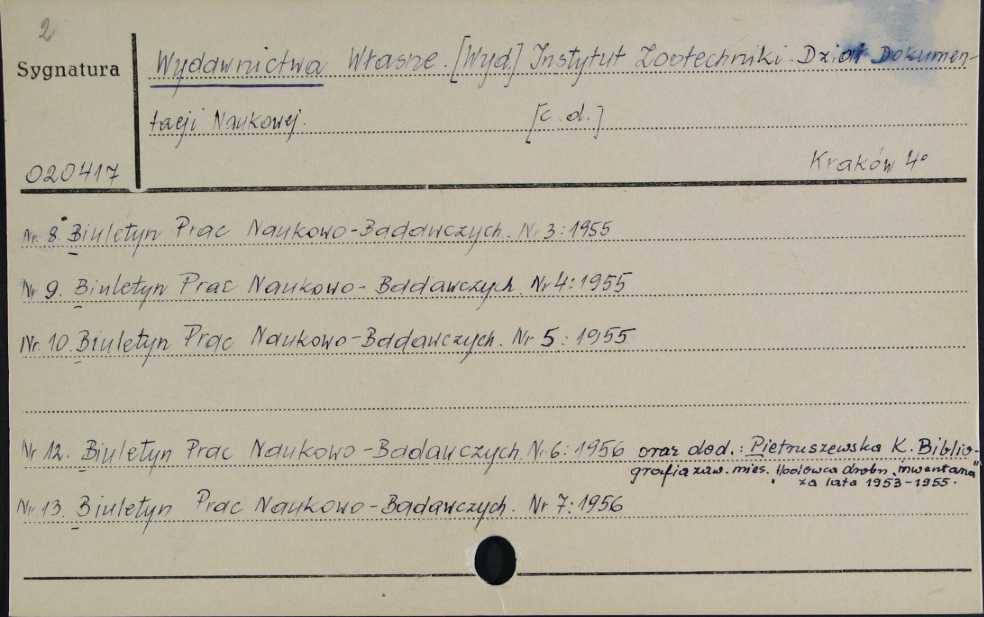 2
Sygnatura
Wydawnictwa Własne. [Wyd.] Instytut Zootechniki. Dział Dokumen-
tacji Naukowej. [c. d.]
020417
Kraków 4°
Nr. 8. Biuletyn Prac Naukowo-Badawczych. Nr 3:1955
Nr 9. Biuletyn Prac Naukowo-Badawczych. Nr 4:1955
Nr. 10. Biuletyn Prac Naukowo-Badawczych. Nr 5:1955
Nr 12. Biuletyn Prac Naukowo-Badawczych. Nr 6:1956 oraz dod.: Pietruszewska K. Biblio-
grafia zaw. mies. "Hodowca drobn. inwentarza"
za lata 1953-1955.
Nr 13. Biuletyn Prac Naukowo-Badawczych. Nr 7:1956